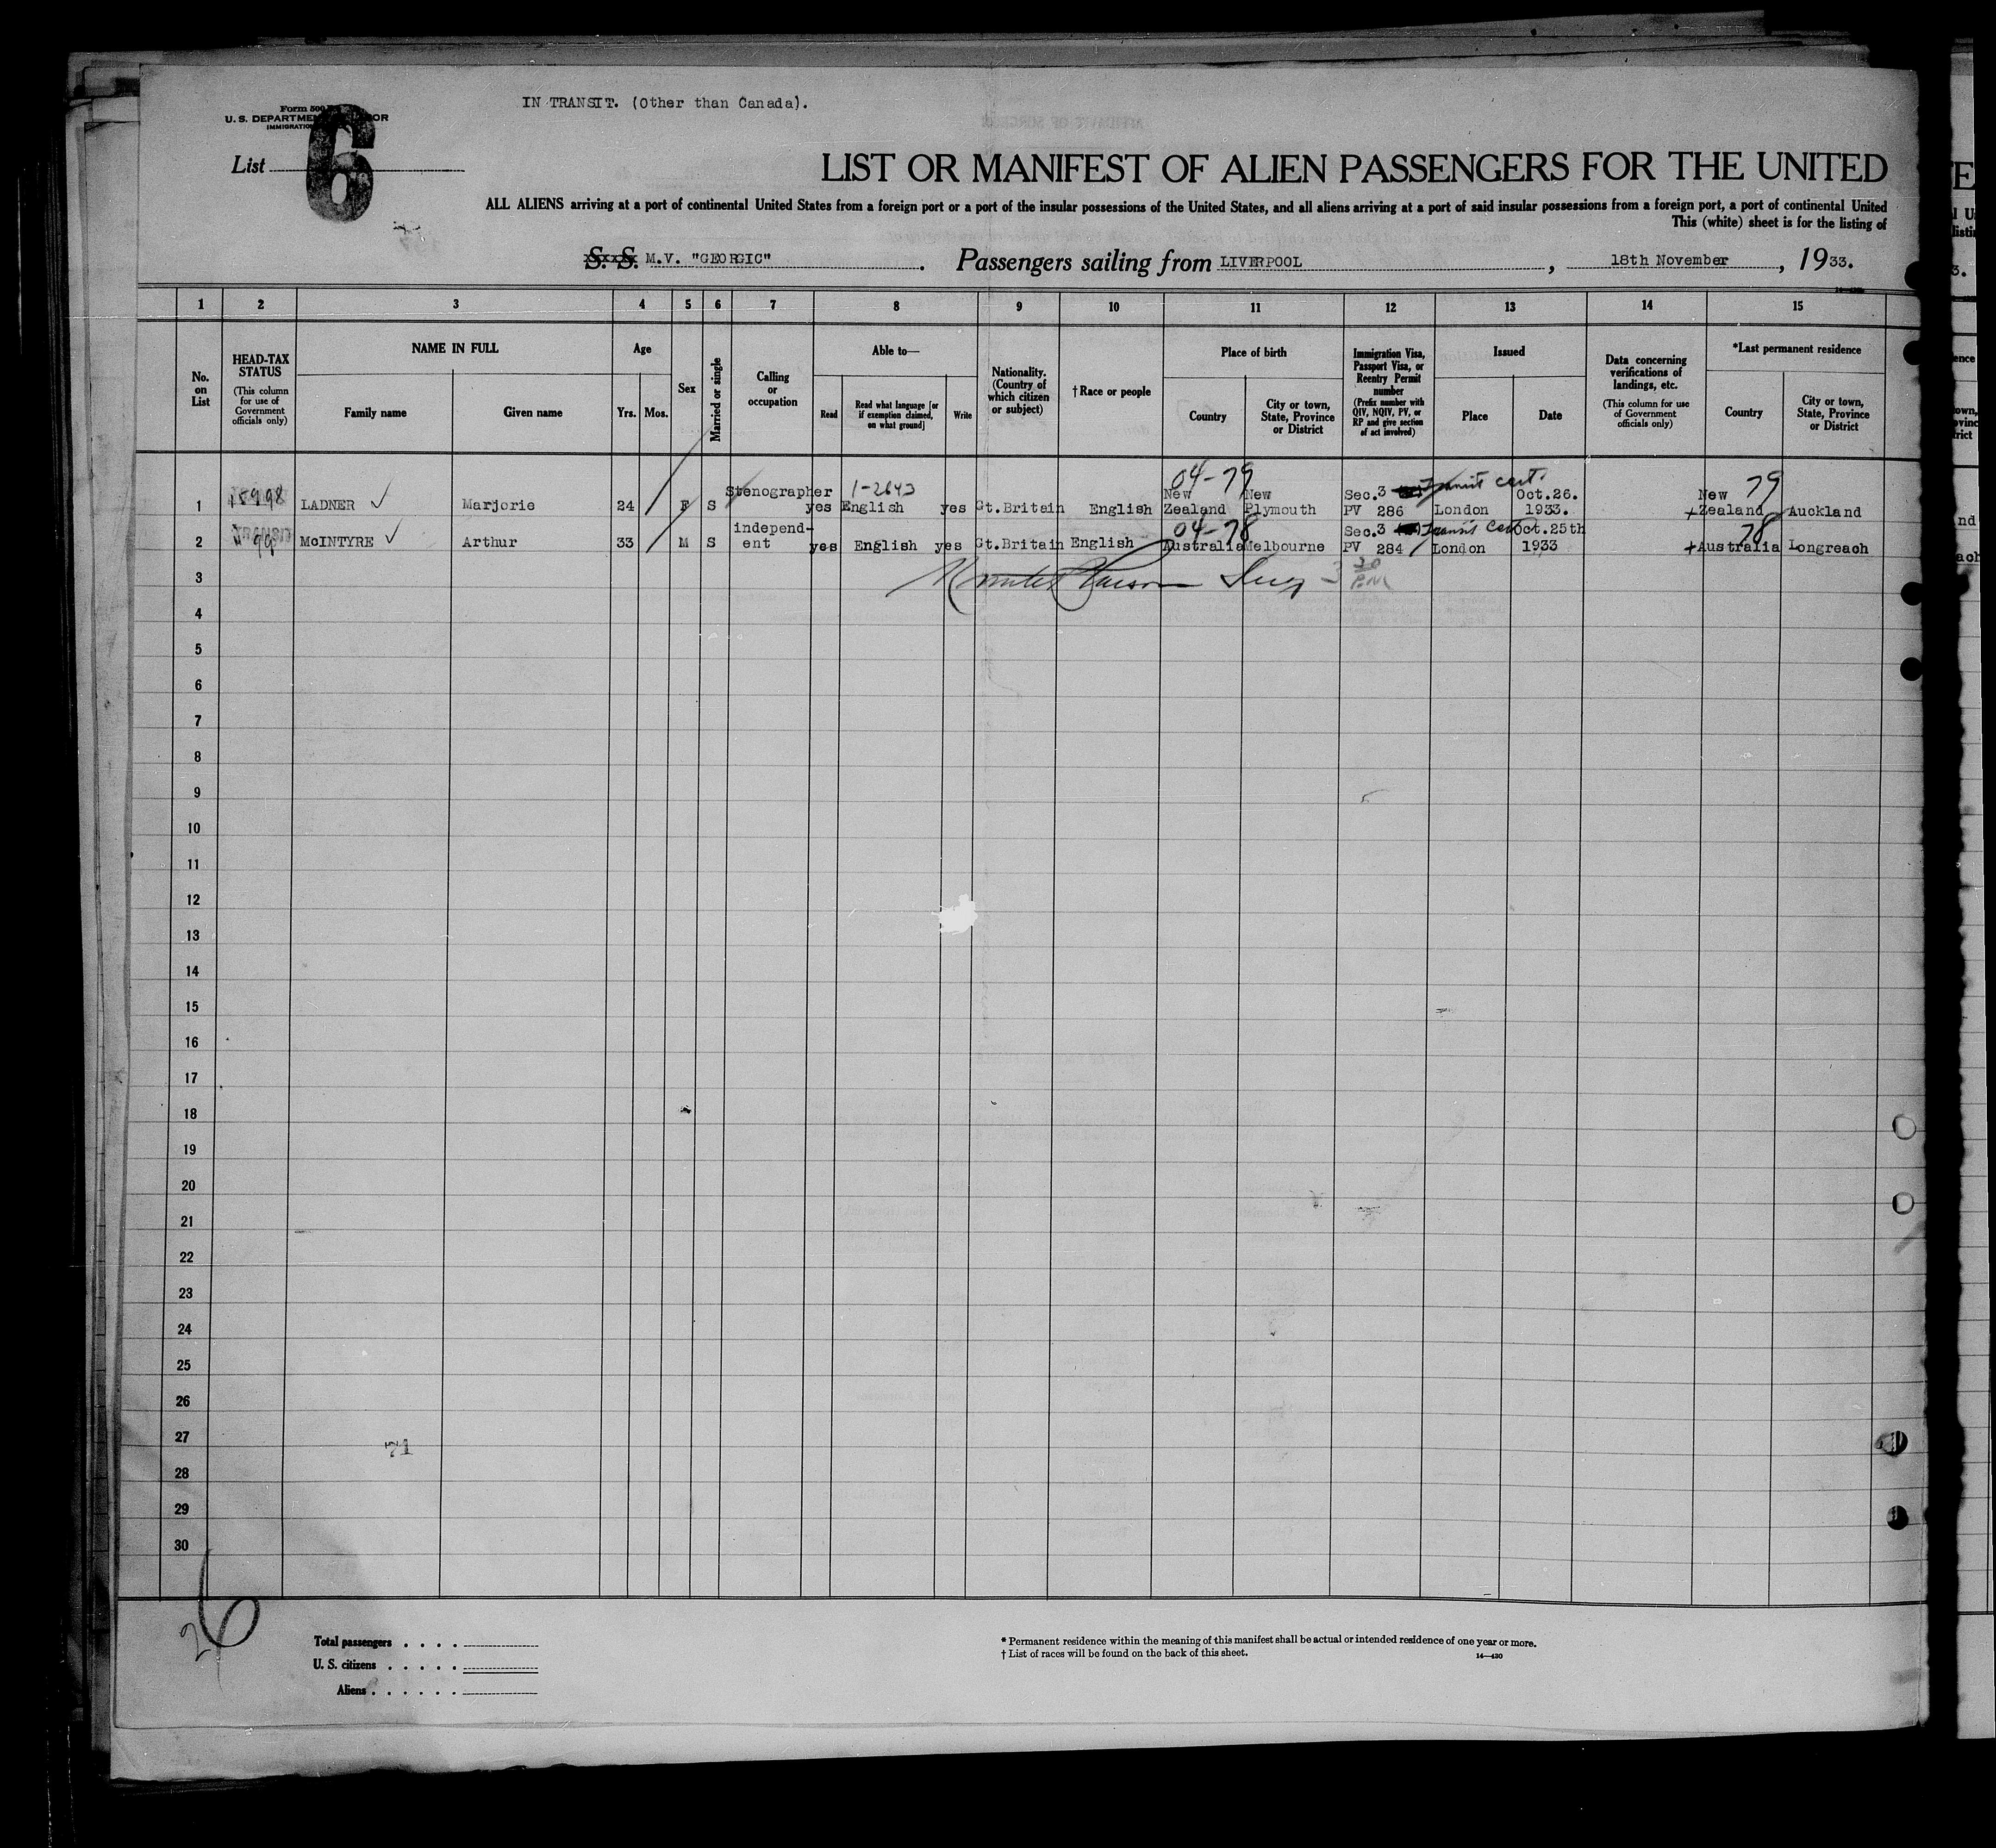 IN TRANSIT. (Other than Canada).
Form 500
U. S. DEPARTMENT OF LABOR
IMMIGRATION
List 6
LIST OR MANIFEST OF ALIEN PASSENGERS FOR THE UNITED
ALL ALIENS arriving at a port of continental United States from a foreign port or a port of the insular possessions of the United States, and all aliens arriving at a port of said insular possessions from a foreign port, a port of continental United
This (white) sheet is for the listing of
S. S. M.V. "GEORGIC" . Passengers sailing from LIVERPOOL , 18th November , 1933.
1 2 3 4 5 6 7 8 9 10 11 12 13 14 15
No. on List
HEAD-TAX STATUS
(This column for use of Government officials only)
NAME IN FULL
Family name Given name
Age
Yrs. Mos.
Sex
Married or single
Calling or occupation
Able to—
Read Read what language [or if exemption claimed, on what ground] Write
Nationality. (Country of which citizen or subject)
† Race or people
Place of birth
Country City or town, State, Province or District
Immigration Visa, Passport Visa, or Reentry Permit number
(Prefix number with QIV, NQIV, PV, or RP and give section of act involved)
Issued
Place Date
Data concerning verifications of landings, etc.
(This column for use of Government officials only)
*Last permanent residence
Country City or town, State, Province or District
04-79 Transit cert. 79
Stenographer 1-2643 New New Sec.3 Oct.26. New
1 LADNER Marjorie 24 F S yes English yes Gt.Britain English Zealand Plymouth PV 286 London 1933. Zealand Auckland
independ- 04-78 Sec.3 Transit Cert Oct.25th 78
2 McINTYRE Arthur 33 M S ent yes English yes Gt.Britain English Australia Melbourne PV 284 London 1933 Australia Longreach
3
4
5
6
7
8
9
10
11
12
13
14
15
16
17
18
19
20
21
22
23
24
25
26
27
71
28
29
30
26
Total passengers
U. S. citizens
Aliens
* Permanent residence within the meaning of this manifest shall be actual or intended residence of one year or more.
† List of races will be found on the back of this sheet.
14—430